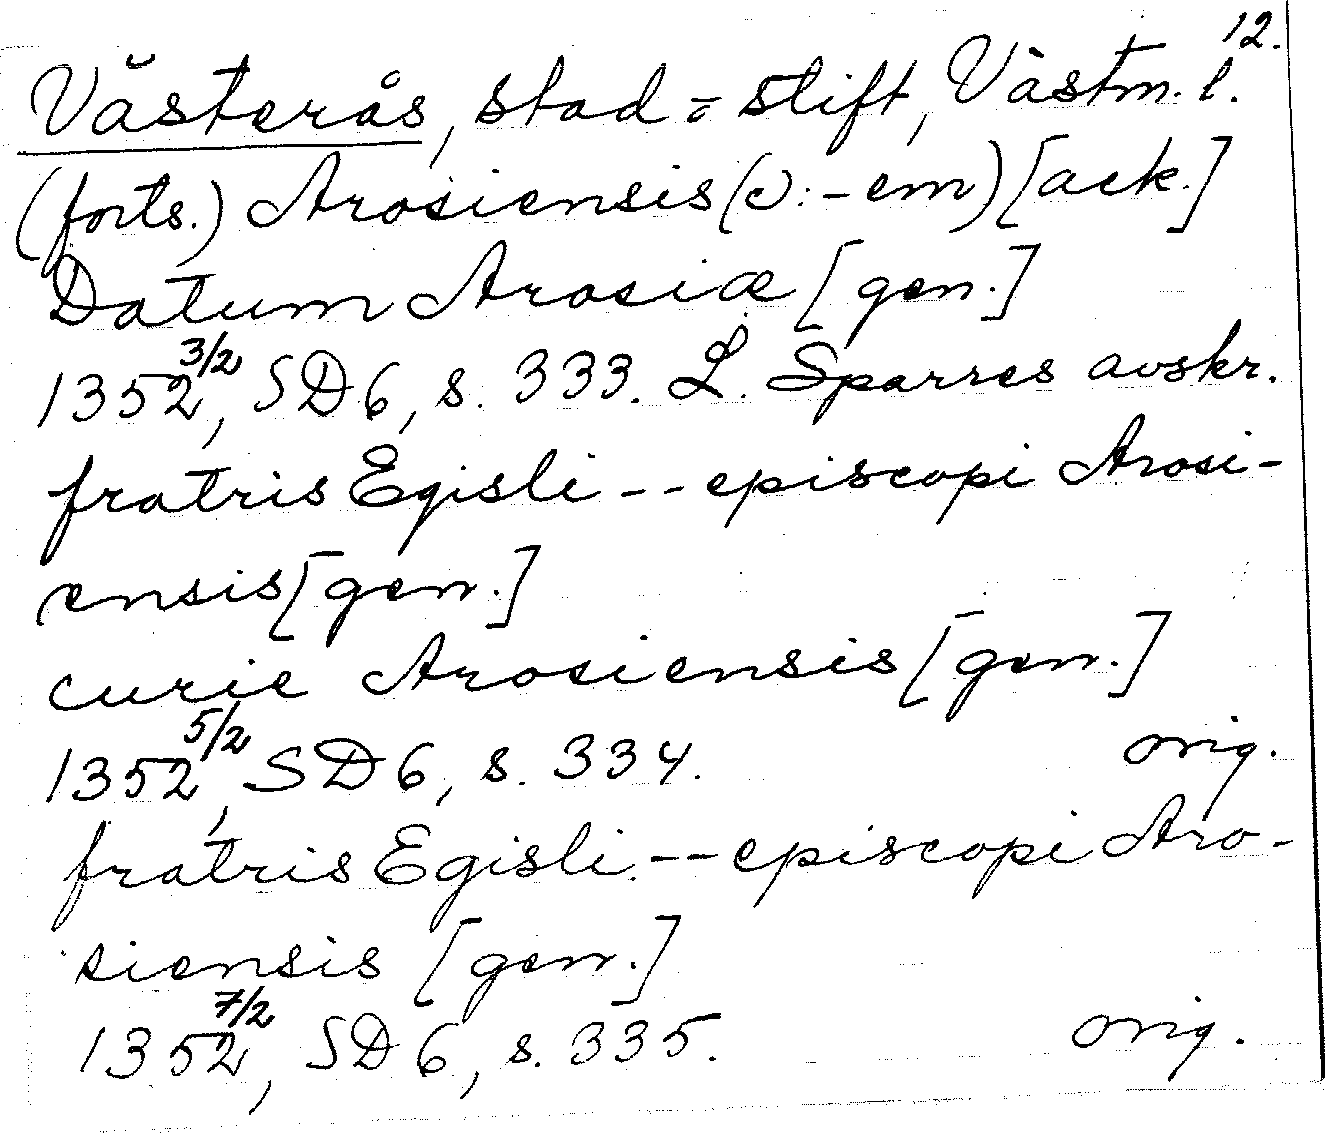 12.
Västerås, stad o. stift, Västm. l.
(forts.) Arosiensis (ɔ: -em) [ack.]
Datum Arosiæ [gen.]
1352 3/2, SD 6, s. 333. L. Sparres avskr.
fratris Egisli -- episcopi Arosi-
ensis [gen.]
curie Arosiensis [gen.]
1352 5/2, SD 6, s. 334. orig.
fratris Egisli -- episcopi Aro-
siensis [gen.]
1352 7/2, SD 6, s. 335. orig.